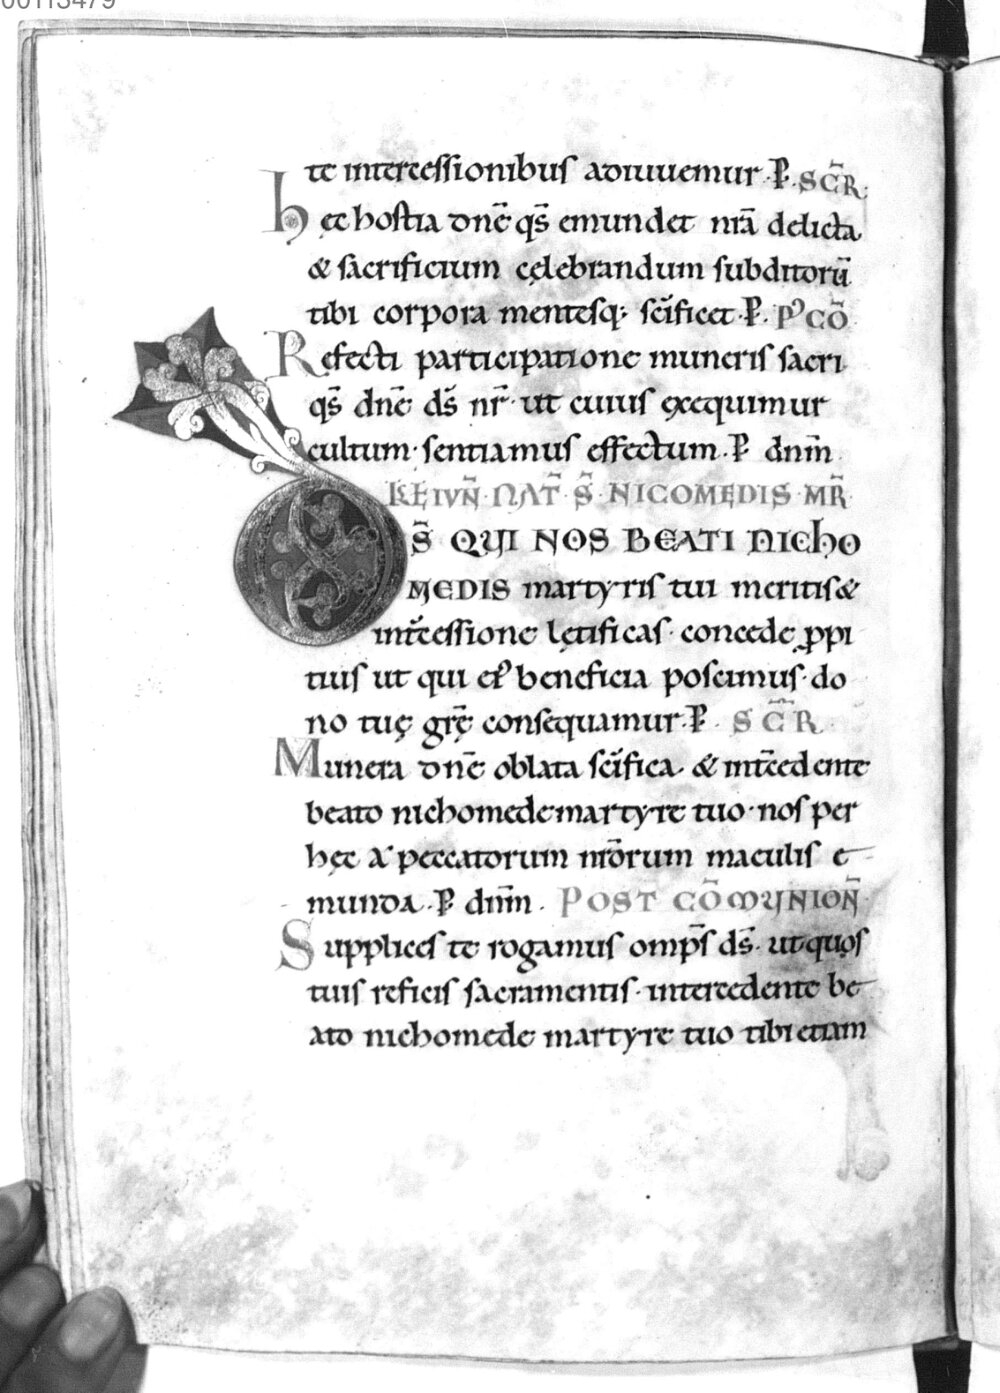 00113479
te intercessionibus adiuuemur. P. SCR̄.
hec hostia dn̄e qs̄ emundet nr̄a delicta
& sacrificium cęlebrandum subditorū
tibi corpora mentesq; scīficet. P. PꝰCŌ
Refecti participatione muneris sacri
qs̄ dn̄e ds̄ nr̄ ut cuius exequimur
cultum · sentiamus effectum. P dnm̄
KL̄ IVN̄ · NAT̄ · S̄ · NICOMEDIS · MR̄
DS̄ QUI NOS BEATI NICHO
MEDIS martyris tui meritis &
int̄cessione lętificas · concede ꝓpi
tius ut qui eiꝰ beneficia poscimus · do
no tuę grę̄ consequamur. P. SCR̄
Munera dn̄e oblata scīfica · & int̄cedente
beato nichomede martyre tuo · nos per
hęc a peccatorum nr̄orum maculis e
munda. P dnm̄. POST CŌMUNION̄
Supplices te rogamus omp̄s ds̄ · ut quos
tuis reficis sacramentis · intercedente be
ato nichomede martyre tuo tibi etiam